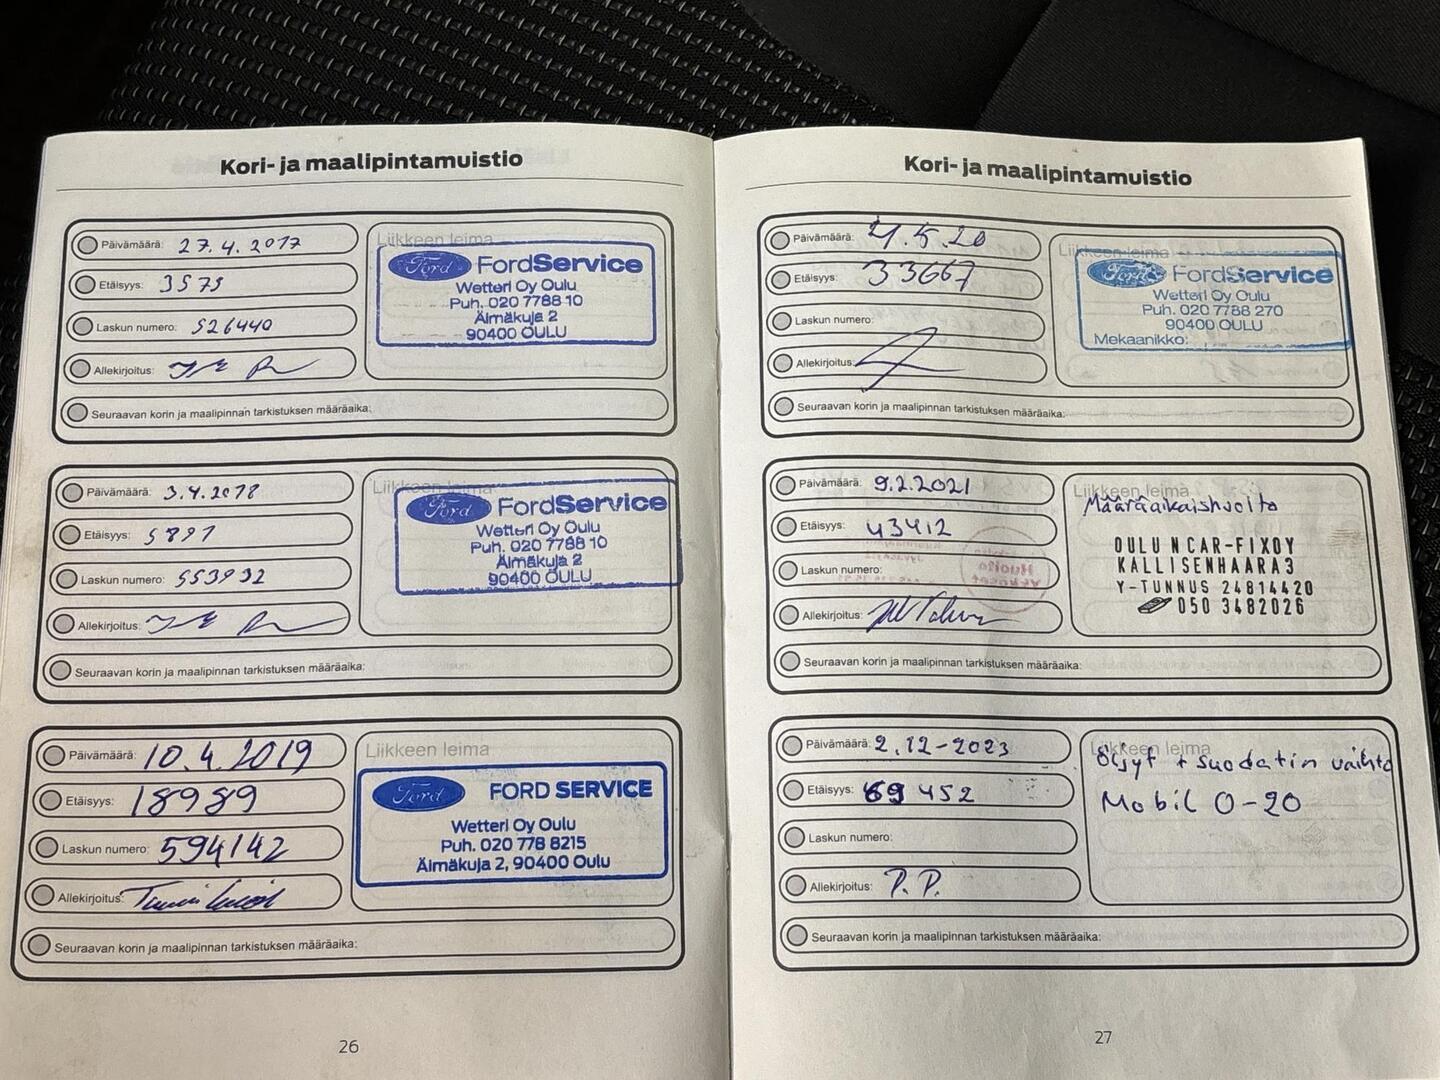 Kori- ja maalipintamuistio
Päivämäärä: 27.4.2017
Etäisyys: 3575
Laskun numero: 526440
Allekirjoitus:
Liikkeen leima
Ford FordService
Wetteri Oy Oulu
Puh. 020 7788 10
Äimäkuja 2
90400 OULU
Seuraavan korin ja maalipinnan tarkistuksen määräaika:
Päivämäärä: 3.4.2018
Etäisyys: 5891
Laskun numero: 553932
Allekirjoitus:
Liikkeen leima
Ford FordService
Wetteri Oy Oulu
Puh. 020 7788 10
Äimäkuja 2
90400 OULU
Seuraavan korin ja maalipinnan tarkistuksen määräaika:
Päivämäärä: 10.4.2019
Etäisyys: 18989
Laskun numero: 594142
Allekirjoitus:
Liikkeen leima
Ford FORD SERVICE
Wetteri Oy Oulu
Puh. 020 778 8215
Äimäkuja 2, 90400 Oulu
Seuraavan korin ja maalipinnan tarkistuksen määräaika:
26
Kori- ja maalipintamuistio
Päivämäärä: 4.5.20
Etäisyys: 33667
Laskun numero:
Allekirjoitus:
Liikkeen leima
Ford FordService
Wetteri Oy Oulu
Puh. 020 7788 270
90400 OULU
Mekaanikko:
Seuraavan korin ja maalipinnan tarkistuksen määräaika:
Päivämäärä: 9.2.2021
Etäisyys: 43412
Laskun numero:
Allekirjoitus:
Liikkeen leima
Määräaikaishuolto
OULUN CAR-FIX OY
KALLISENHAARA 3
Y-TUNNUS 24814420
050 3482026
Seuraavan korin ja maalipinnan tarkistuksen määräaika:
Päivämäärä: 2.12-2023
Etäisyys: 69452
Laskun numero:
Allekirjoitus: P.P.
Liikkeen leima
Öljyt + suodatin vaihto
Mobil 0-20
Seuraavan korin ja maalipinnan tarkistuksen määräaika:
27